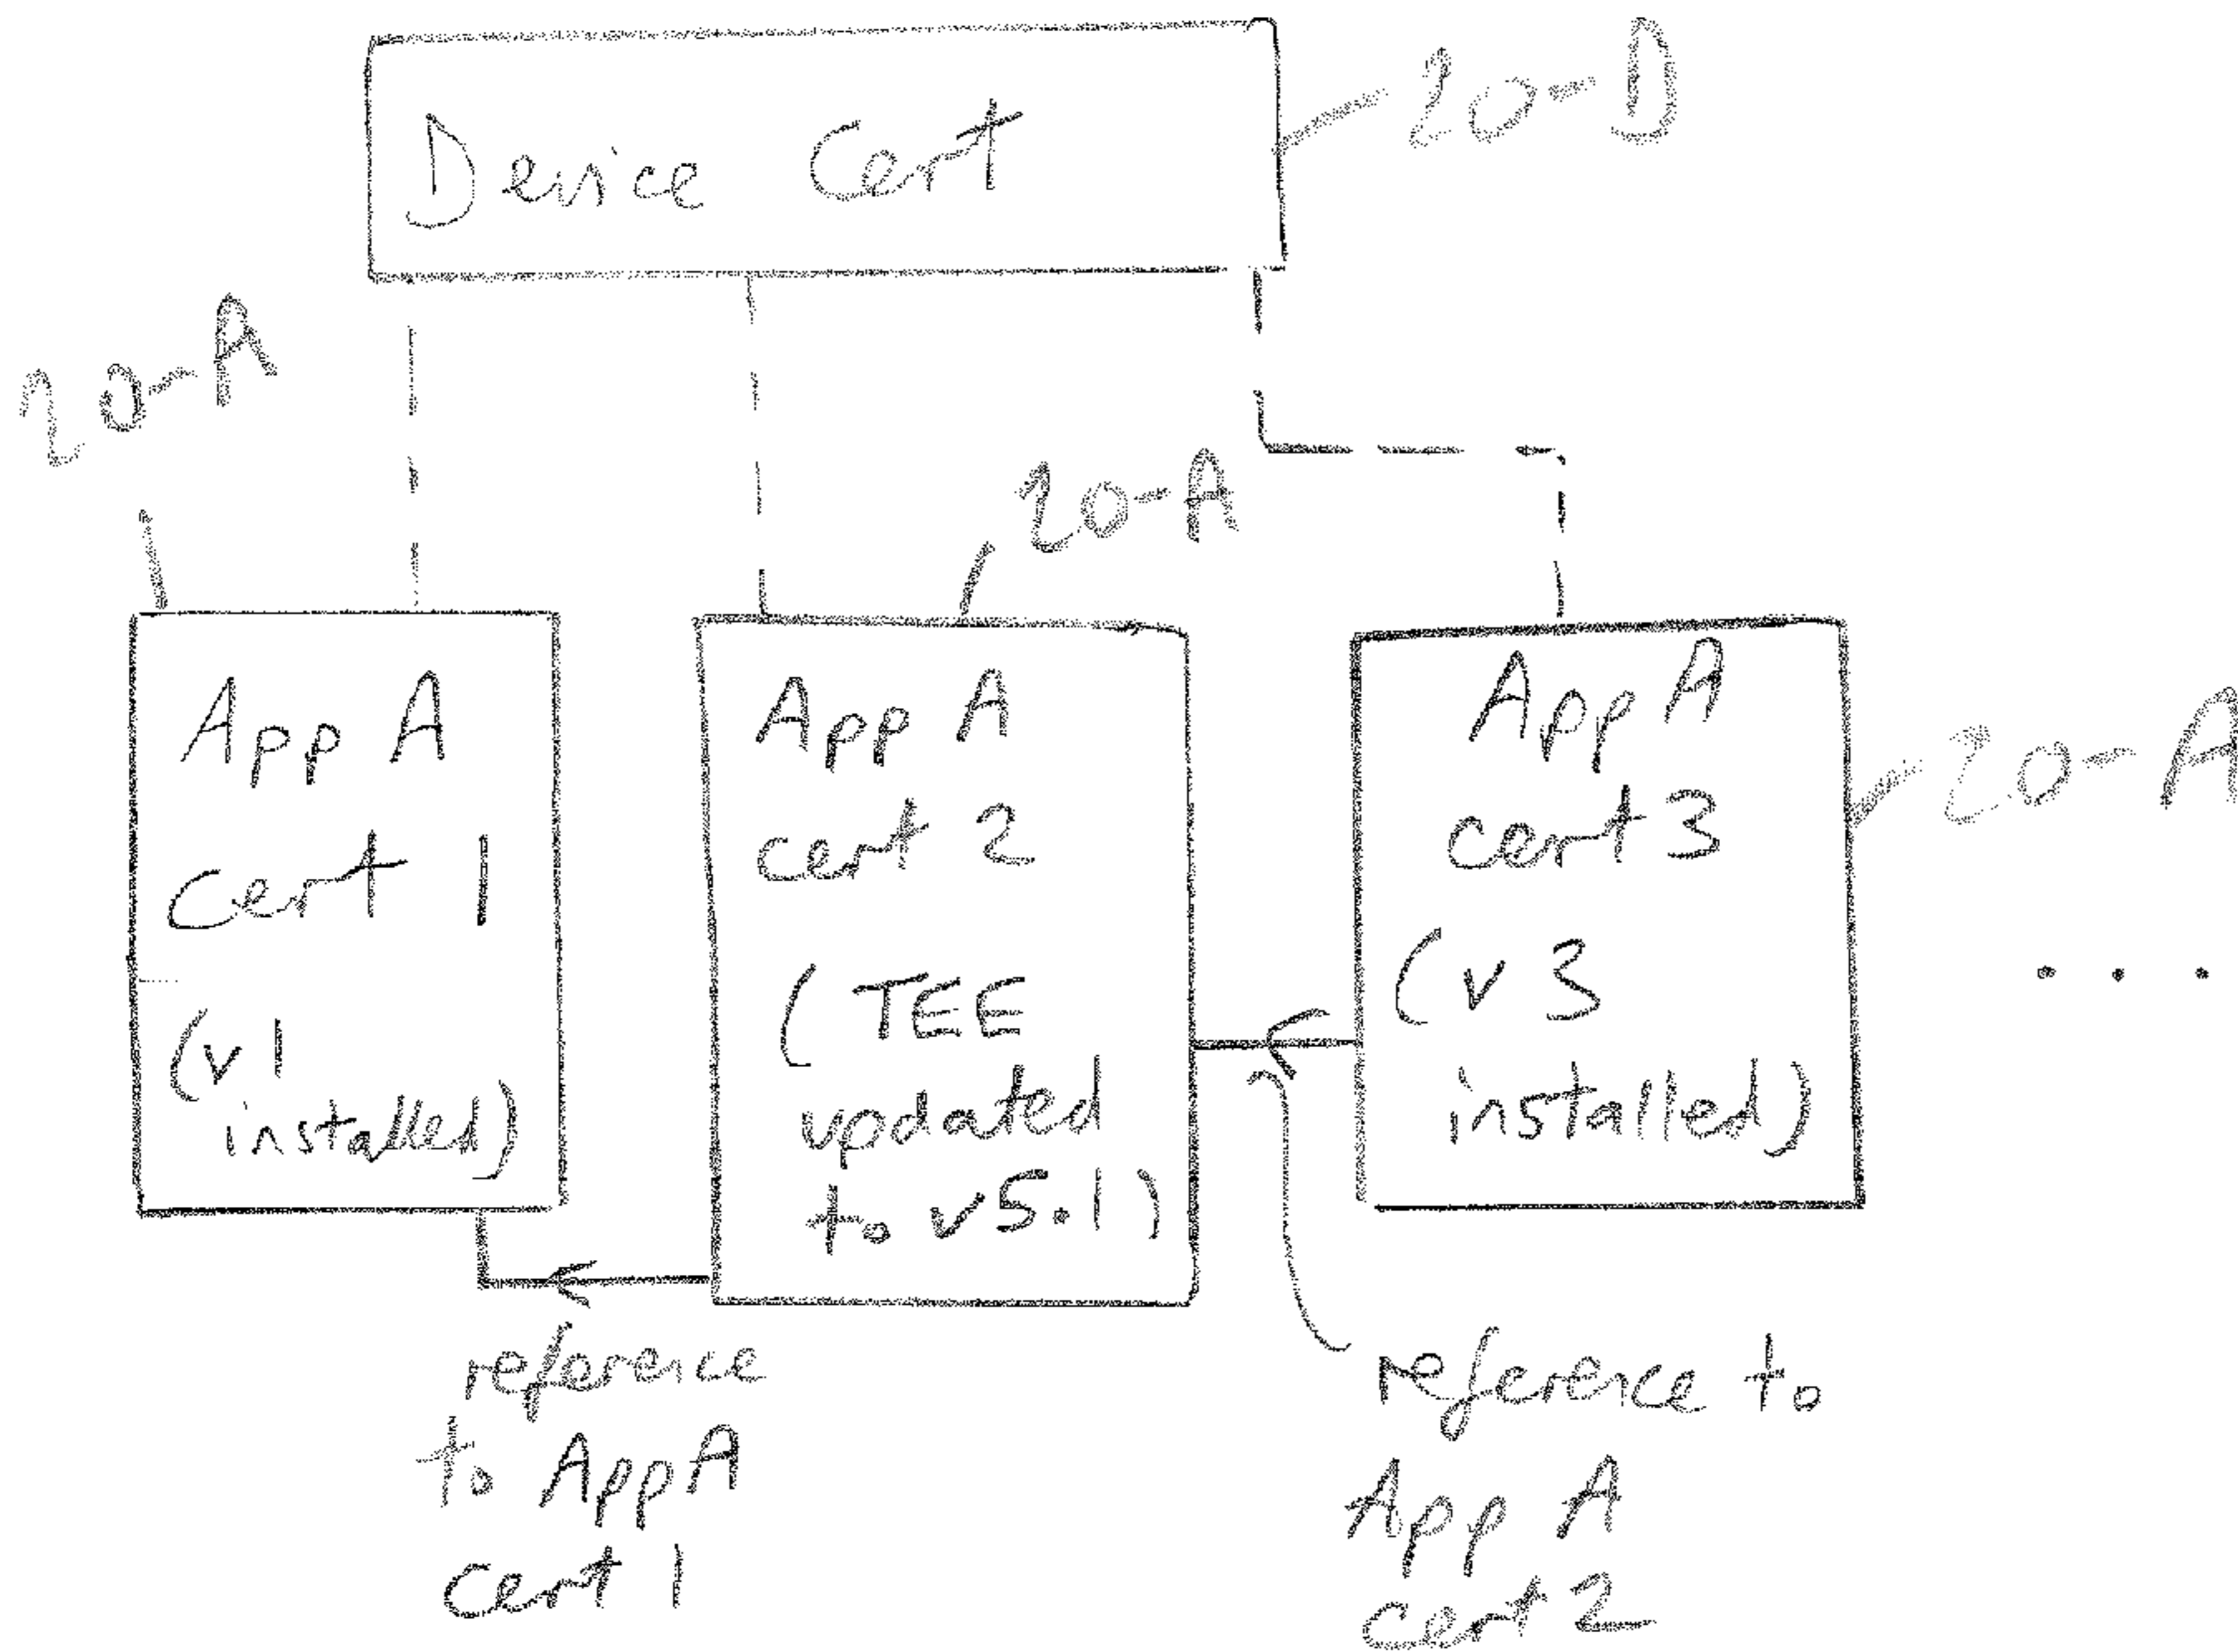 Device Cert
20-D
20-A
20-A
App A
Cert 1
(v1
installed)
App A
cert 2
(TEE
updated
to v5.1)
App A
cert 3
(v3
installed)
20-A
...
reference
to App A
cert 1
reference to
App A
cert 2